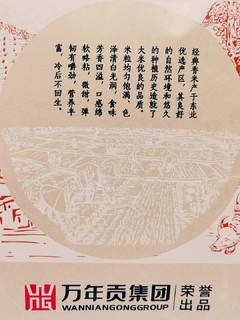 经典香米产于东北
优选产区，其良好
的自然环境和悠久
的种植历史造就了
大米优良的品质。
米粒均匀饱满、色
泽清白光润，食味
芳香四溢，口感绵
软略粘，微甜，弹
韧有嚼劲，营养丰
富，冷后不回生。
万年贡集团
WANNIANGONGGROUP
荣誉
出品